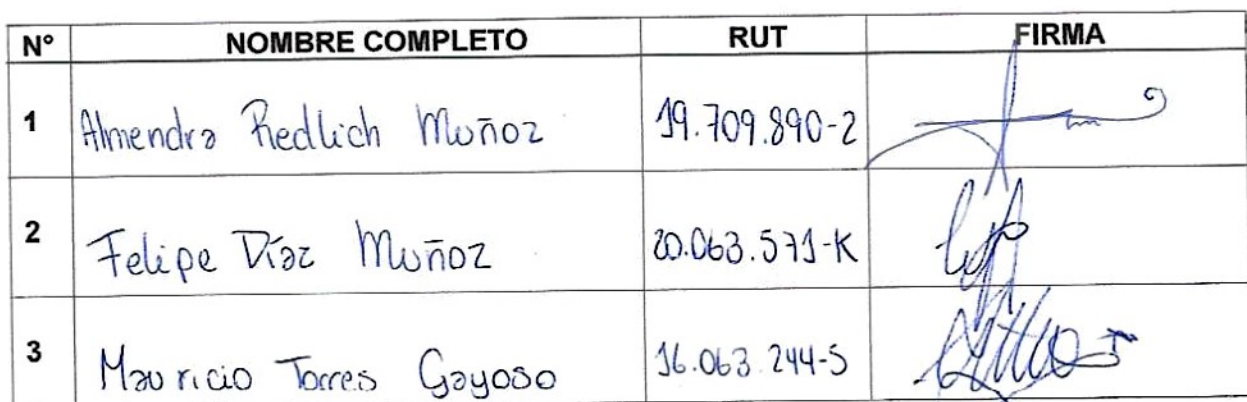 N° NOMBRE COMPLETO RUT FIRMA
1 Almendra Redlich Muñoz 19.709.890-2
2 Felipe Díaz Muñoz 20.063.571-K
3 Mauricio Torres Gayoso 16.063.244-5